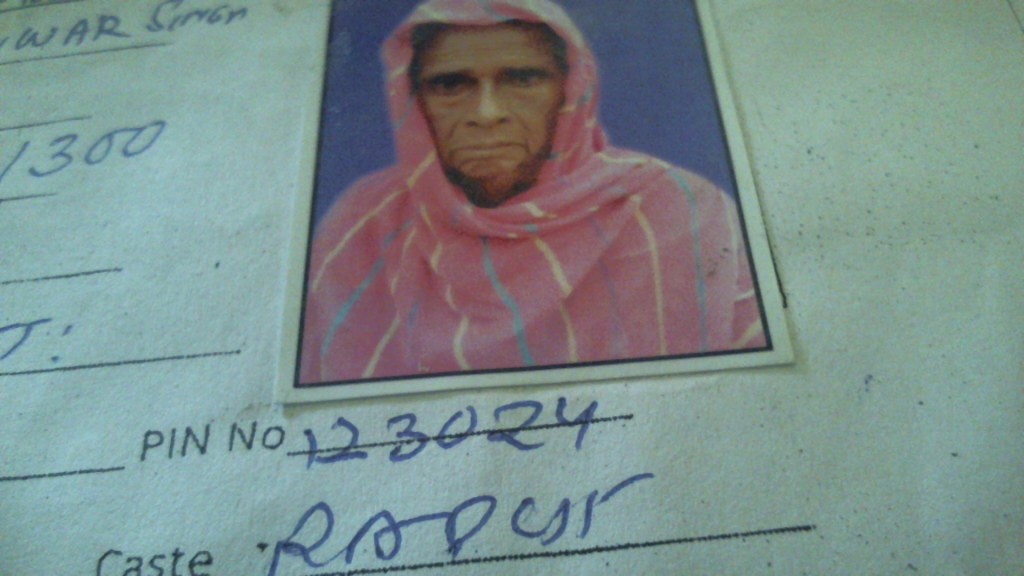 WAR SINGH
/300
T.
PIN NO 123024
Caste RAPUT